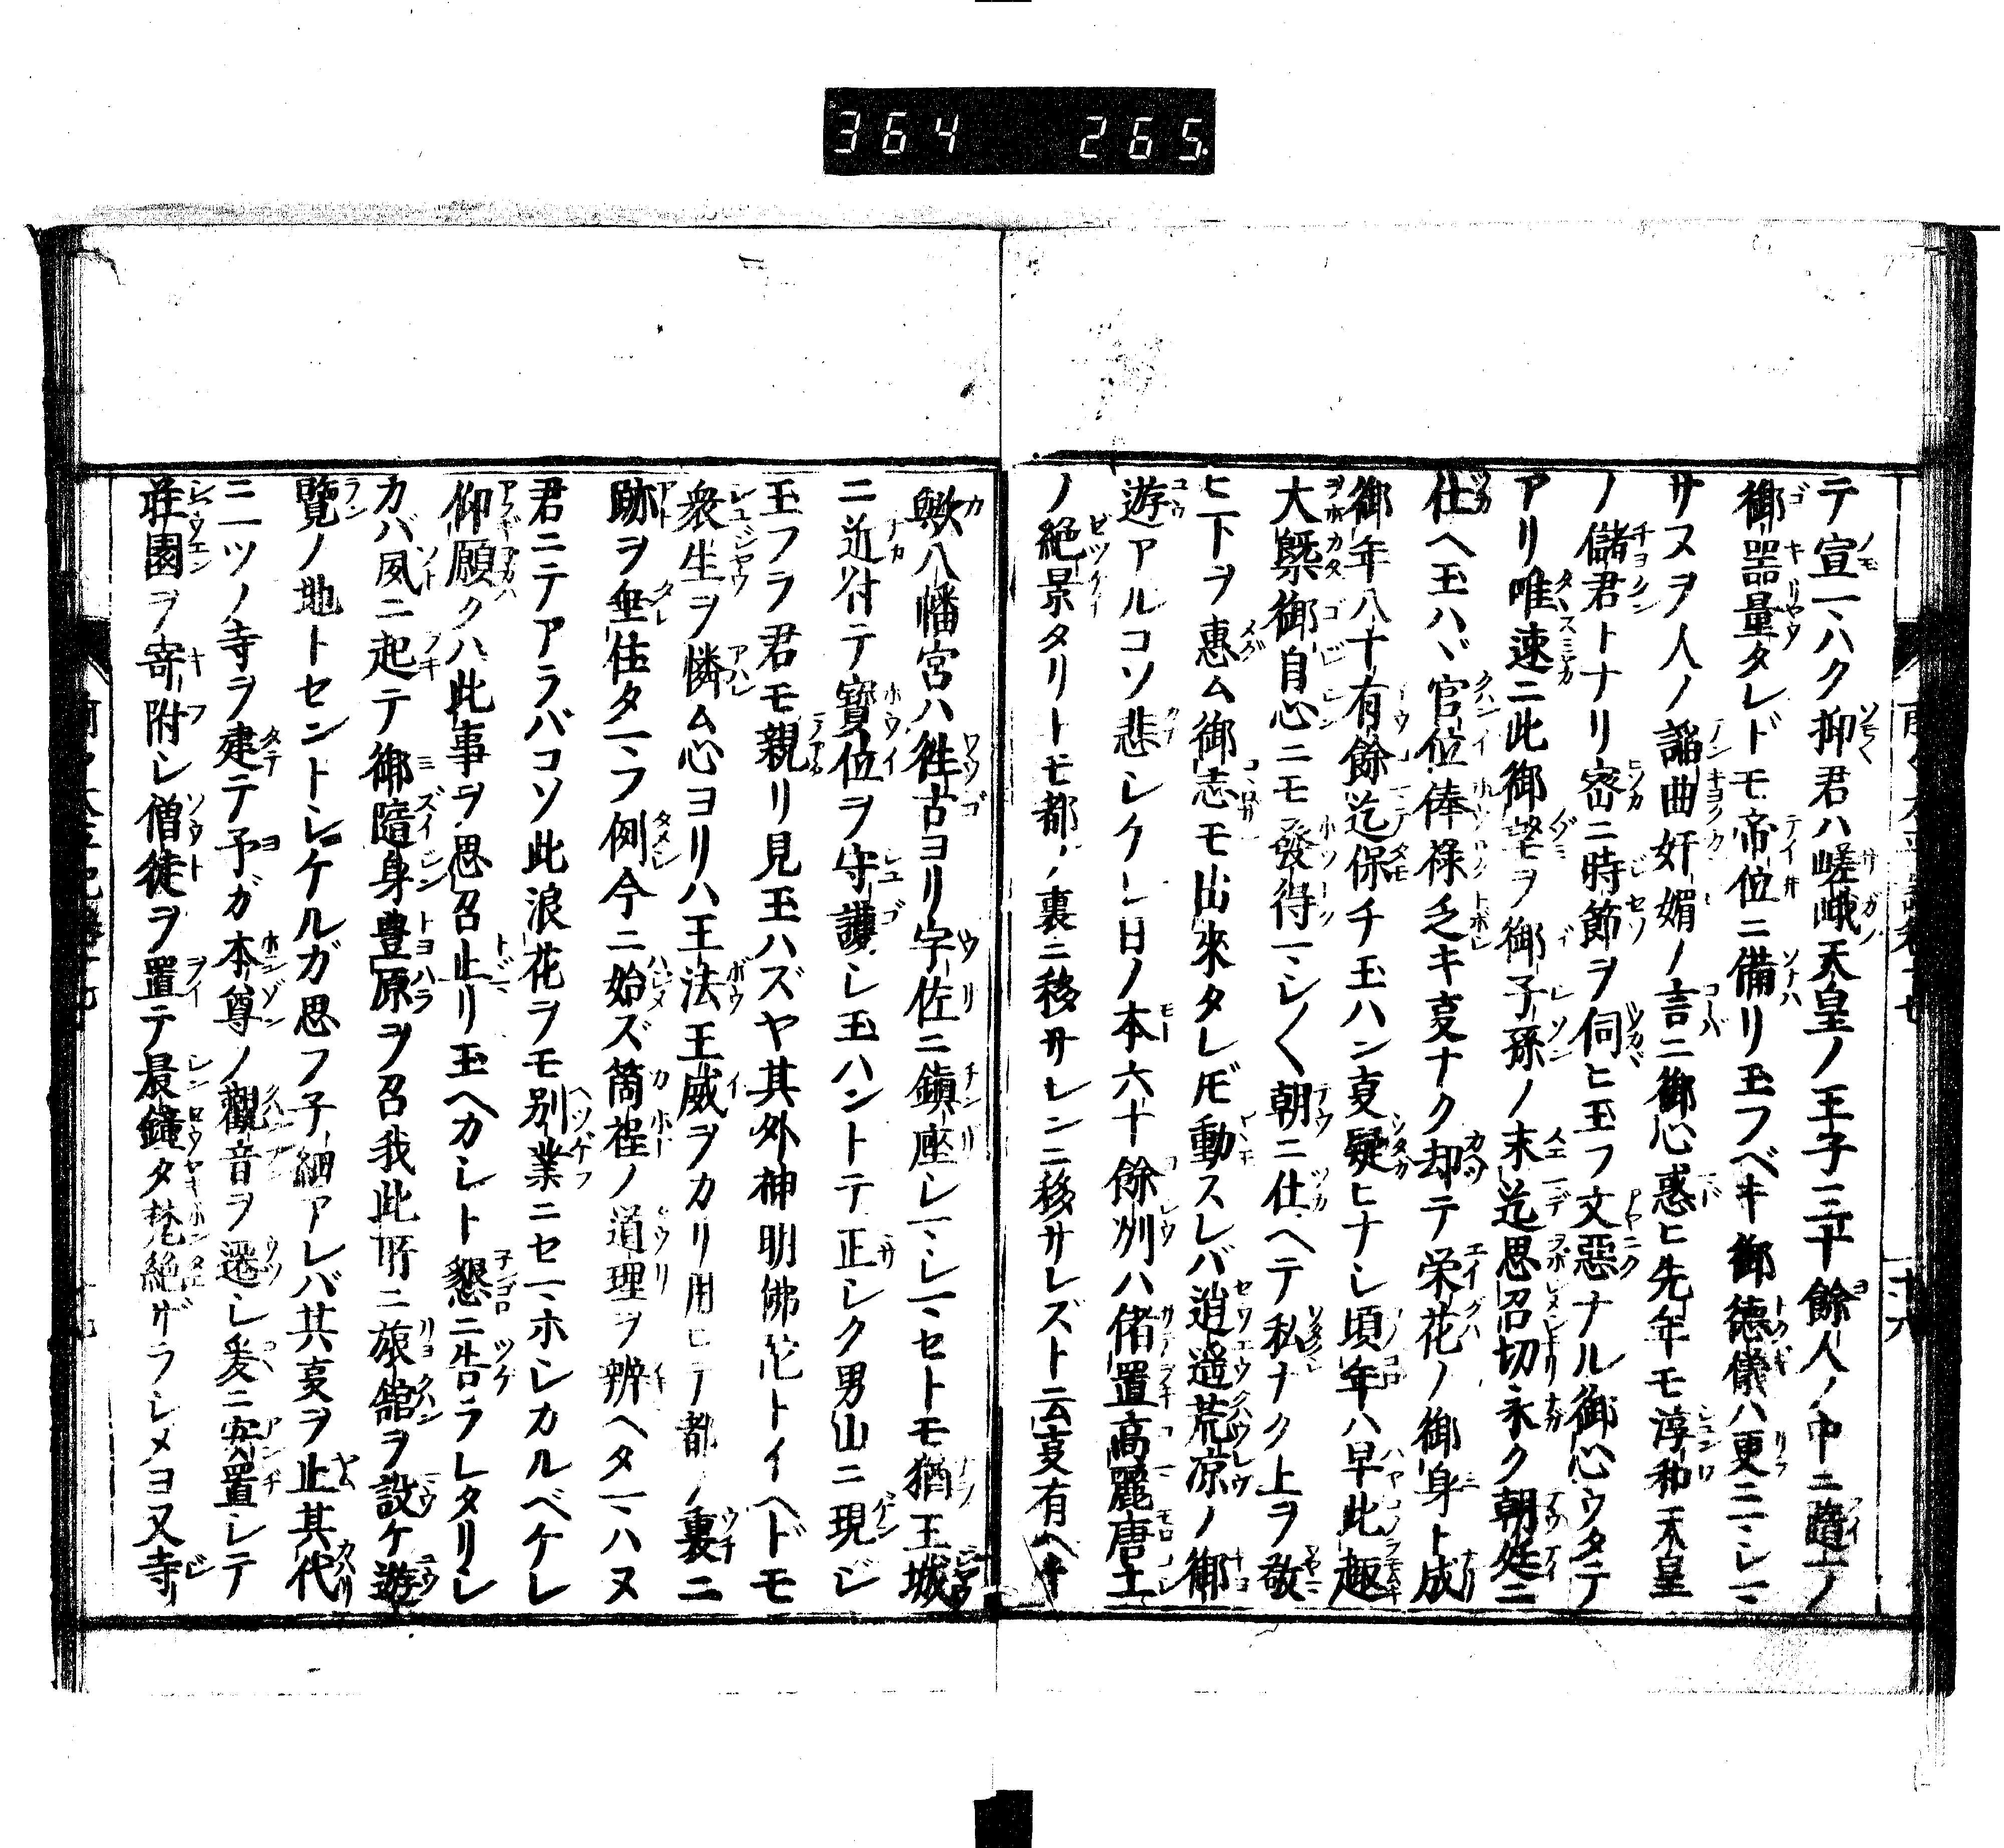 364 265
テ宣マハク抑君ハ嵯峨天皇ノ王子三十餘人ノ中ニ隨一ノ
御器量タレドモ帝位ニ備リ玉フベキ御德儀ハ更ニマシマ
サヌヲ人ノ謟曲奸媚ノ言ニ御心惑ヒ先年モ淳和天皇
ノ儲君トナリ密ニ時節ヲ伺ヒ玉フ文惡ナル御心ウタテ
アリ唯速ニ此御望ヲ御子孫ノ末迄思召切永ク朝廷ニ
仕ヘ玉ハヾ官位俸祿乏キ叓ナク却テ栄花ノ御身ト成
御年八十有餘迄保チ玉ハン叓疑ヒナシ頃年ハ早此趣
大槩御自心ニモ發得マシ〱朝ニ仕ヘテ私ナク上ヲ敬
ヒ下ヲ惠ム御志モ出來タレドモ動スレバ逍遥荒凉ノ御
遊アルコソ悲シケレ日ノ本六十餘州ハ偖置高麗唐土
ノ絶景タリトモ都ノ裏ニ移サレンニ移サレズト云叓有ヘキ
歟八幡宮ハ徃古ヨリ宇佐ニ鎭座シマシマセトモ猶王城
ニ近付テ寶位ヲ守護シ玉ハントテ正シク男山ニ現ジ
玉フラ君モ親リ見玉ハズヤ其外神明佛陀トイヘドモ
衆生ヲ憐ム心ヨリハ王法王威ヲカリ用ヒテ都ノ裏ニ
跡ヲ垂住タマフ例今ニ始ズ箇程ノ道理ヲ辨ヘタマハヌ
君ニテアラバコソ此浪花ヲモ別業ニセマホシカルベケレ
仰願クハ此事ヲ思召止リ玉ヘカシト懇ニ告ラレタリシ
カバ夙ニ起テ御隨身豊原ヲ召我此所ニ旅舘ヲ設ケ遊
覽ノ地トセントシケルガ思フ子細アレバ其叓ヲ止其代
ニ一ツノ寺ヲ建テ予ガ本尊ノ觀音ヲ遷シ爰ニ安置シテ
莊園ヲ寄附シ僧徒ヲ置テ晨鐘夕梵絶ザラシメヨ又寺